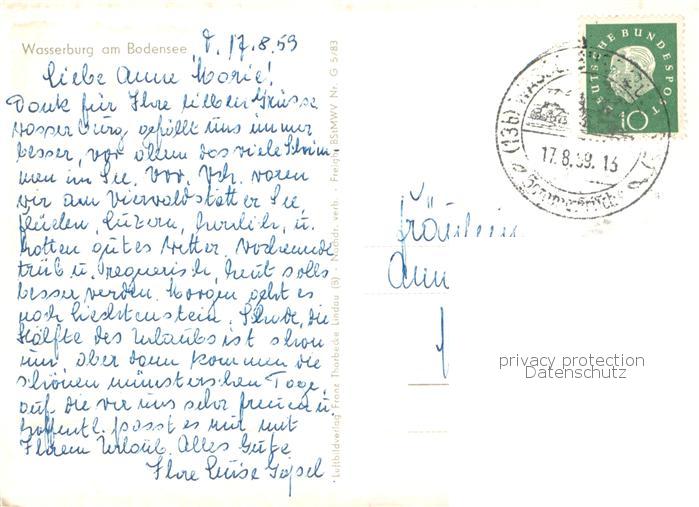 Wasserburg am Bodensee, d. 17.8.59
Liebe Anne Marie!
Dank für Ihre lieben Grüsse
Wasserburg gefällt uns immer
besser, vor allem das viele Schwim
men im See. Vor. Wch. waren
wir am Vierwaldstätter See
Flüelen, Luzern, herrlich, u.
hatten gutes Wetter. Wochenende
trüb u. regnerisch, heut solls
besser werden. Morgen geht es
nach Liechtenstein. Schade, die
Hälfte des Urlaubs ist schon
um, aber dann kommen die
schönen münsterschen Tage,
auf die wir uns sehr freuen u.
hoffentl. passt es nur mit
Ihrem Urlaub. Alles Gute
Ihre Luise
Luftbildverlag Franz Thorbecke Lindau (B) - Nachdr. verb. Freig. BStMWV Nr. G 5/83
DEUTSCHE BUNDESPOST
10
(13b) WASSERBURG
17.8.59.13
Fräulein
Ann
privacy protection
Datenschutz